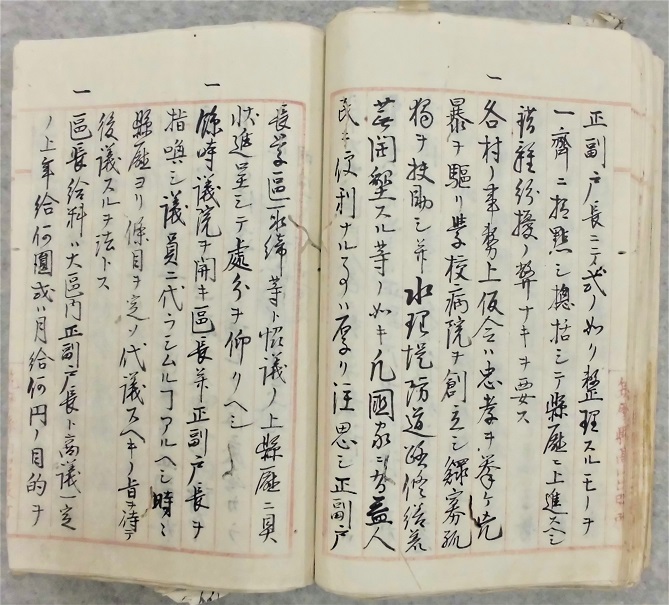 正副戸長ニテ式ノ如ク整理スルモノヲ
一齊ニ相點シ摠括シテ縣廳ニ上進スヘシ
錯雜紛擾ノ弊ナキヲ要ス
一
各村ノ事務上仮令ハ忠孝ヲ挙ケ兇
暴ヲ驅リ学校病院ヲ創立シ鰥寡孤
獨ヲ扶助シ并水理堤防道路修繕荒
蕪開墾スル等ノ如キ凡國家ニ為益人
民ニ便利ナル事ハ厚ク注思シ正副戸
長学區取締等ト協議ノ上縣廳ニ具
状進呈シテ處分ヲ仰クヘシ
一
臨時議院ヲ開キ區長并正副戸長ヲ
指喚シ議員ニ代ラシムルヿアルヘシ時ニ
縣廳ヨリ條目ヲ定ソ代議スヘキノ旨ヲ待テ
後議スルヲ法トス
一
區長給料ハ大區内正副戸長ト商議一定
ノ上年給何圓或ハ月給何円ノ目的ヲ